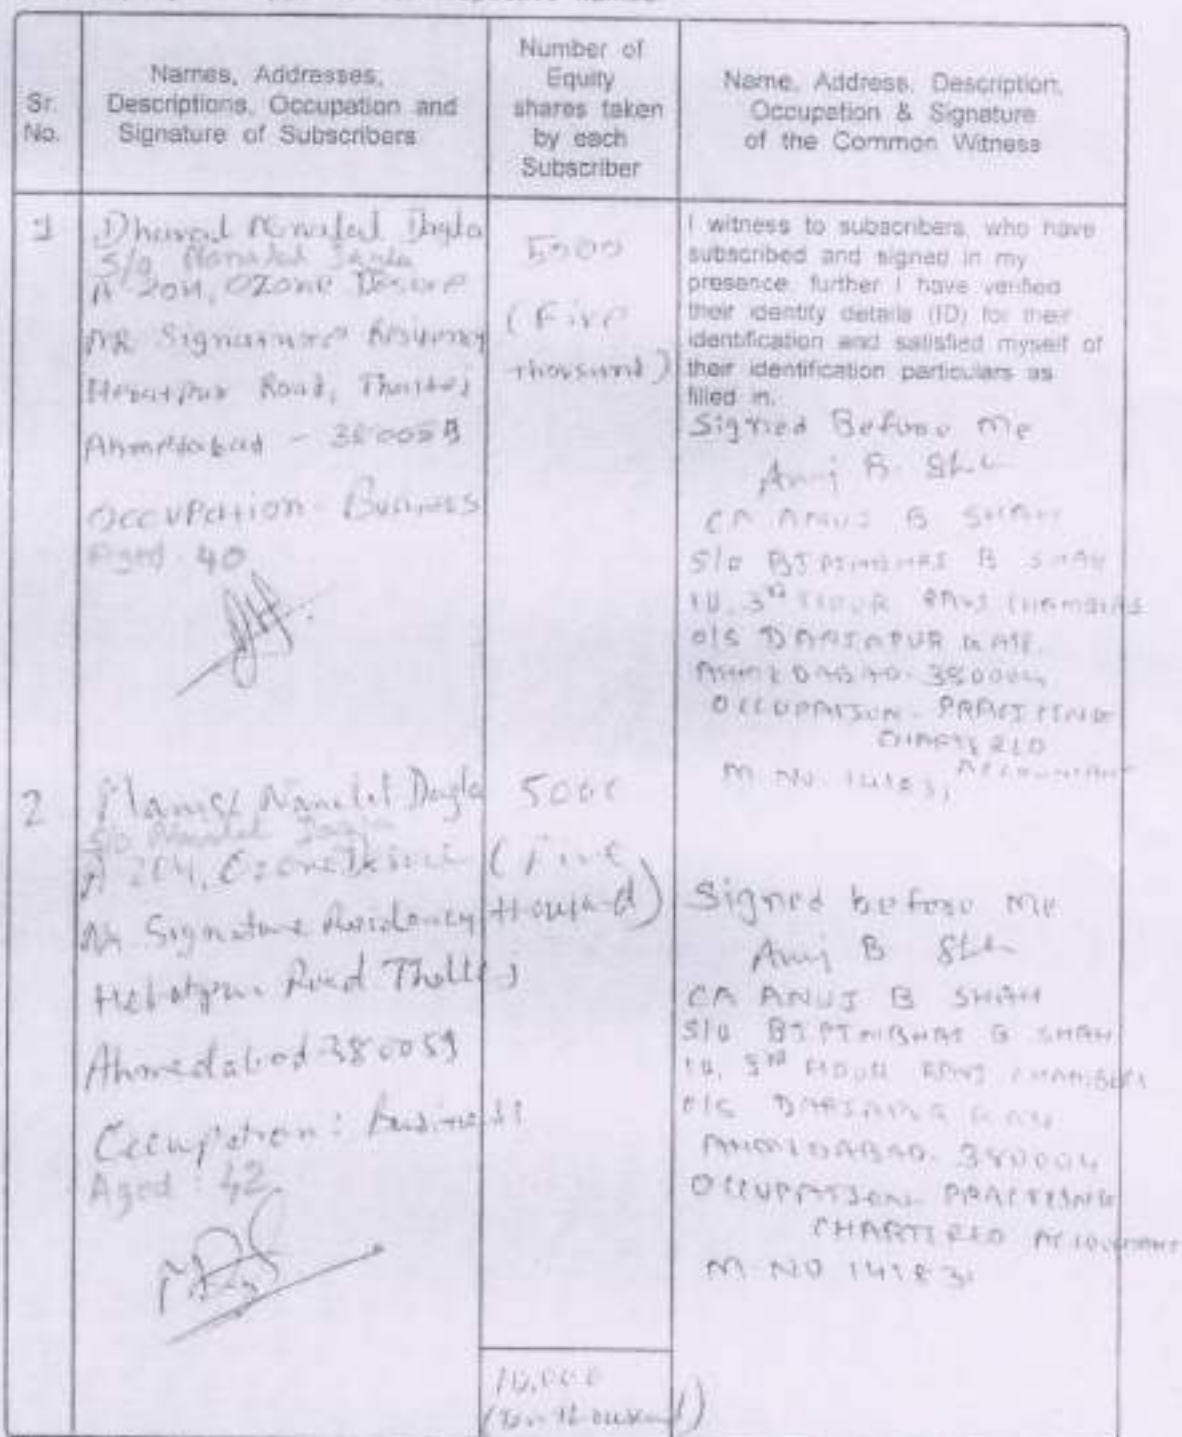 Sr. No.
Names, Addresses, Descriptions, Occupation and Signature of Subscribers
Number of Equity shares taken by each Subscriber
Name, Address, Description, Occupation & Signature of the Common Witness
1
Dhaval Nanalal Dagla
S/o Nanalal Dagla
A 204, Ozone Desire
Nr Signature Residency
Hebatpur Road, Thaltej
Ahmedabad - 380059
Occupation - Business
Aged - 40
5000
(Five
thousand)
I witness to subscribers, who have
subscribed and signed in my
presence, further I have verified
their identity details (ID) for their
identification and satisfied myself of
their identification particulars as
filled in.
Signed Before me
Anuj B. Shah
CA ANUJ B SHAH
S/o BIPINBHAI B SHAH
3rd FLOOR CHAMBERS
O/S DARIAPUR GATE
AHMEDABAD. 380004
OCCUPATION - PRACTISING
CHARTERED
ACCOUNTANT
M. NO. 141831
2
Nanalal Dagla
S/o Nanalal Dagla
A 204, Ozone Desire
Nr Signature Residency
Hebatpur Road Thaltej
Ahmedabad 380059
Occupation : Business
Aged : 42
5000
(Five
thousand)
Signed before me
Anuj B Shah
CA ANUJ B SHAH
S/o BIPINBHAI B SHAH
3rd FLOOR CHAMBERS
O/S DARIAPUR GATE
AHMEDABAD. 380004
OCCUPATION - PRACTISING
CHARTERED ACCOUNTANT
M. NO 141831
10,000
(Ten thousand)